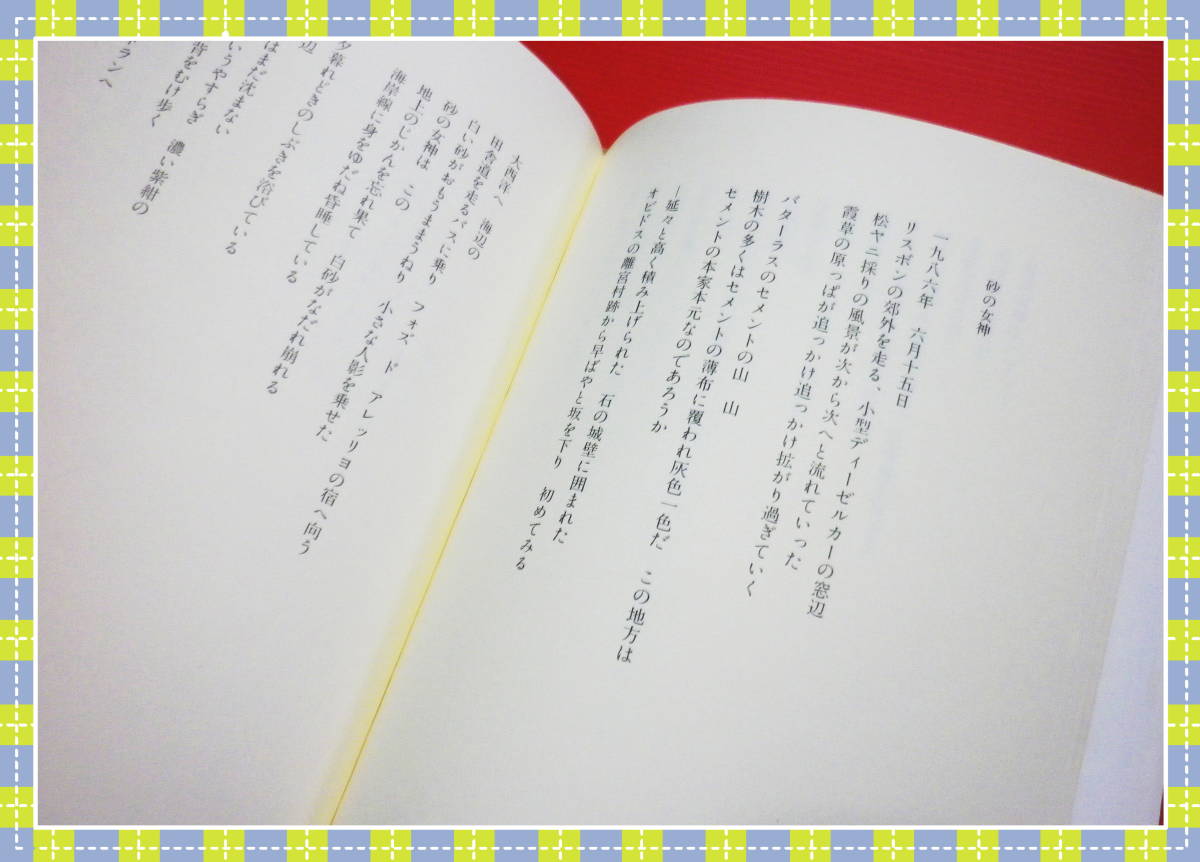 砂の女神
一九八六年　六月十五日
リスボンの郊外を走る、小型ディーゼルカーの窓辺
松ヤニ採りの風景が次から次へと流れていった
霞草の原っぱが追っかけ追っかけ拡がり過ぎていく
バターラスのセメントの山　山
樹木の多くはセメントの薄布に覆われ灰色一色だ　この地方は
セメントの本家本元なのであろうか
―延々と高く積み上げられた　石の城壁に囲まれた
オビドスの離宮村跡から早ばやと坂を下り　初めてみる
大西洋へ　海辺の
田舎道を走るバスに乗り　フォズ　ド　アレッリョの宿へ向う
白い砂がおもうままうねり　小さな人影を乗せた
砂の女神は　この
地上のじかんを忘れ果て　白砂がなだれ崩れる
海岸線に身をゆだね昏睡している
夕暮れどきのしぶきを浴びている
辺
はまだ沈まない
いうやすらぎ　濃い紫紺の
背をむけ歩く
ランへ